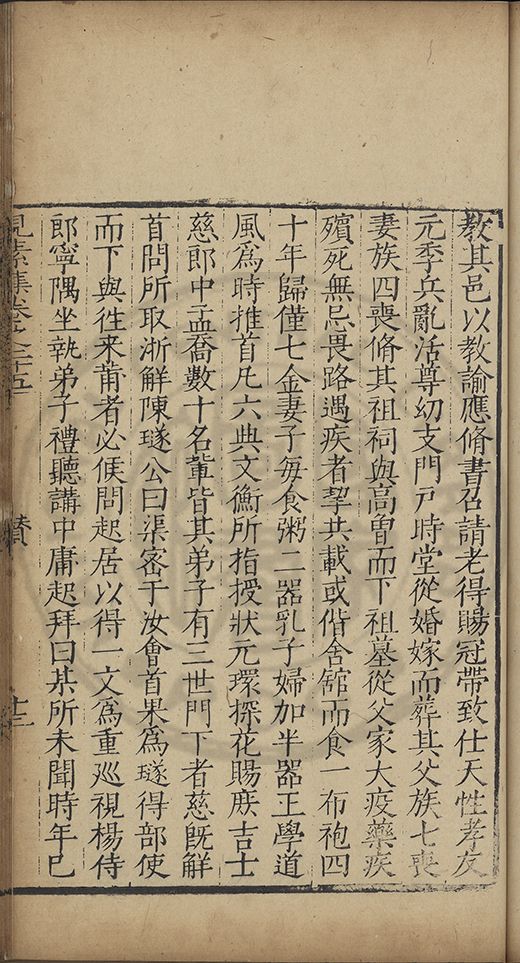 教其邑以教諭應脩書召請老得賜冠帶致仕天性孝友
元季兵亂活尊幼支門戶時堂從婚嫁而葬其父族七喪
妻族四喪脩其祖祠與高曽而下祖墓從父家大疫藥疾
殯死無忌畏路遇疾者挈共載或偕舍舘而食一布袍四
十年歸僅七金妻子每食粥二器乳子婦加半器王學道
風爲時推首凡六典文衡所指授狀元環探花賜庻吉士
慈郎中孟喬數十名輩皆其弟子有三世門下者慈旣解
首問所取浙解陳璲公曰渠宻于汝會首果爲璲得部使
而下與徃来莆者必候問起居以得一文爲重廵視楊侍
郎寧隅坐執弟子禮聽講中庸起拜曰某所未聞時年已
見素集卷之二十五
賛
十三